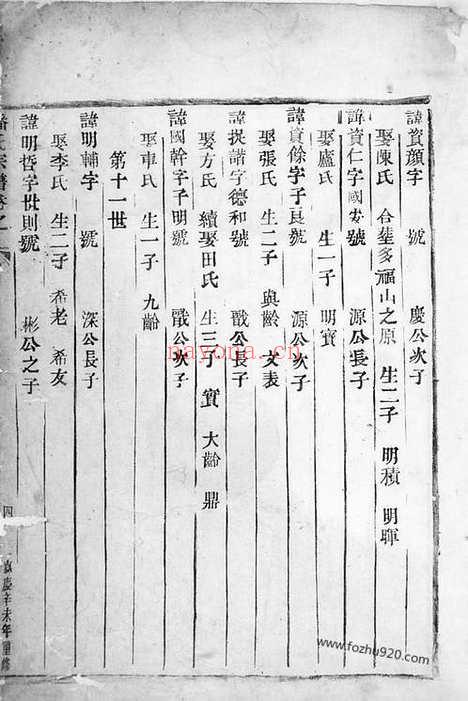 諱資顔字 號 慶公次子
娶陳氏 合塟多福山之原 生二子 明積 明暉
諱資仁字國安號 源公長子
娶盧氏 生一子 明寳
諱資餘字子良號 源公次子
娶張氏 生二子 與齡 文表
諱挺諧字德和號 戩公長子
娶方氏 續娶田氏 生三子 實 大齡 鼎
諱國幹字子明號 戩公次子
娶車氏 生一子 九齡
第十一世
諱明輔字 號 深公長子
娶李氏 生二子 希老 希友
諱明哲字世則號 彬公之子
氏宗譜卷之一
四 嘉慶辛未年重修
nayona.cn
www.fozhu920.com